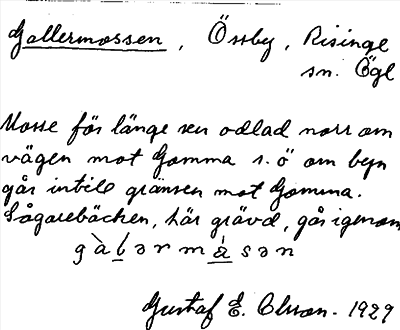 Gallermossen, Össby, Risinge
sn. Ögl
Mosse för länge sen odlad norr om
vägen mot Gomma s. ö om byn
går intill gränsen mot Gomma.
Sågarebäcken, här grävd, går igenom
gàlərmåsən
Gustaf E. Olsson. 1929